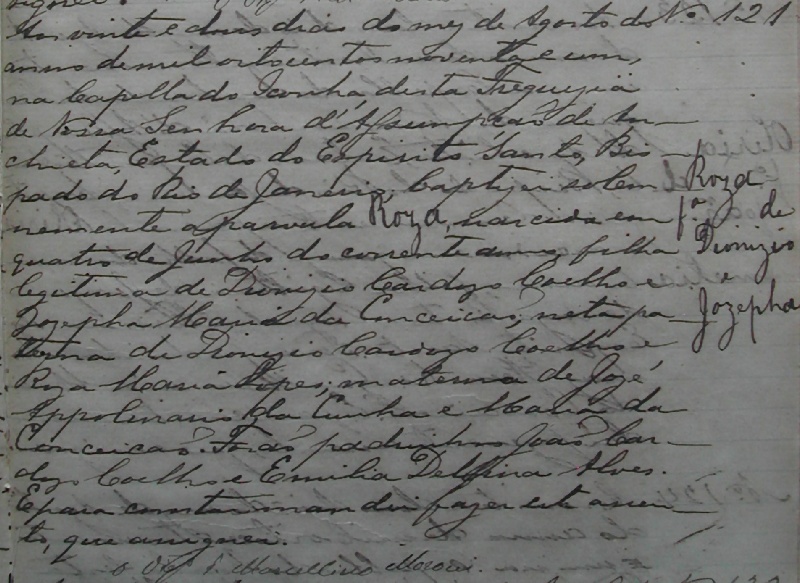 Aos vinte e dous dias do mez de Agosto do Nº 121
anno de mil oitocentos noventa e um,
na Capella do Iconha desta Freguezia
de Nossa Senhora d'Assumpção de An-
chieta, Estado do Espirito Santo, Bis-
pado do Rio de Janeiro, baptizei solem-
nemente a parvula Roza, nascida em
quatro de Junho do corrente anno, filha
legitima de Dionizio Cardozo Coelho e
Jozepha Maria da Conceicão; neta pa-
terna de Dionizio Cardozo Coelho e
Roza Maria Lopes; materna de Jozé
Appolinario da Cunha e Maria da
Conceicão. Forão padrinhos João Car-
dozo Coelho e Emilia Delfina Alves.
E para constar mandei fazer este assen-
to, que assignei.
Roza
fª de
Dionizio
e
Jozepha